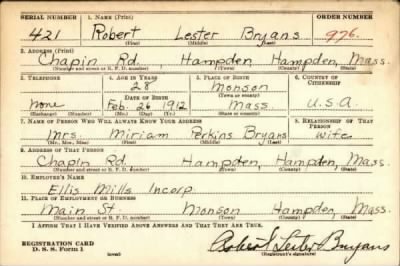 SERIAL NUMBER 1. NAME (Print) ORDER NUMBER
421 Robert Lester Bryans 976.
(First) (Middle) (Last)
2. ADDRESS (Print)
Chapin Rd. Hampden, Hampden, Mass.
(Number and street or R. F. D. number) (Town) (County) (State)
3. TELEPHONE 4. AGE IN YEARS 5. PLACE OF BIRTH 6. COUNTRY OF CITIZENSHIP
28 Monson
DATE OF BIRTH (Town or county)
None Feb. 26 1912 Mass. U.S.A.
(Exchange) (Number) (Mo.) (Day) (Yr.) (State or country)
7. NAME OF PERSON WHO WILL ALWAYS KNOW YOUR ADDRESS 8. RELATIONSHIP OF THAT PERSON
Mrs. Miriam Perkins Bryans Wife
(Mr., Mrs., Miss) (First) (Middle) (Last)
9. ADDRESS OF THAT PERSON
Chapin Rd. Hampden, Hampden, Mass.
(Number and street or R. F. D. number) (Town) (County) (State)
10. EMPLOYER'S NAME
Ellis Mills Incorp.
11. PLACE OF EMPLOYMENT OR BUSINESS
Main St. Monson Hampden, Mass.
(Number and street or R. F. D. number) (Town) (County) (State)
I AFFIRM THAT I HAVE VERIFIED ABOVE ANSWERS AND THAT THEY ARE TRUE.
REGISTRATION CARD
D. S. S. Form 1
Robert Lester Bryans
(Registrant's signature)